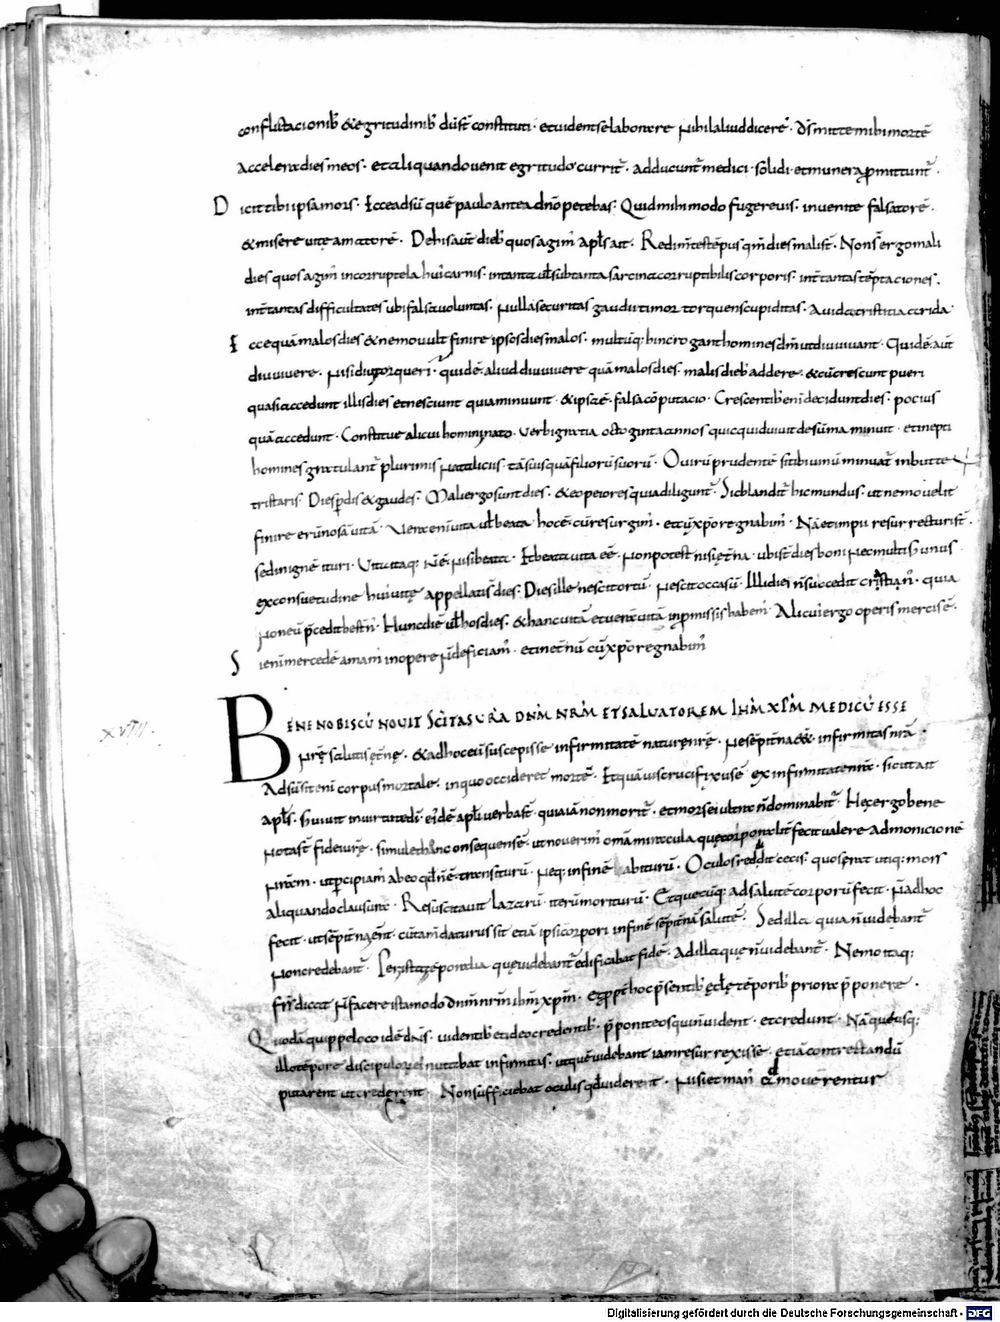 conflictacionib; & egritudinib; dursę constituti · et uident se laborare · nihil aliud dicere · d̄s mitte mihi mortē
accelera dies meos · et aliquando uenit egritudo curritr̄ · adducuntr̄ medici · solidi · et munera promittuntr̄ ·
Dicit tibi ipsa mors · Ecce adsū quē paulo antea a dn̄o petebas · Quid mihi modo fugere uis · inuenire falsatorē ·
& miserę uitę amatorē · De his aut̄ dieb; quos agim̄ apls̄ ait · Redim̄tes tēpus qm̄ dies mali st̄ · Non s̄ ergo mali
dies quos agim̄ in corruptela hui' carnis · in tanta ul̄ sub tanta sarcina corruptibilis corporis · int̄ tantas tēptaciones ·
int̄ tantas difficultates ubi falsa uoluntas · nulla securitas gaudii timor torquens cupiditas · auida tristitia arida ·
Ecce quā malos dies & nemo uult finire ipsos dies malos · multūq; hinc rogant homines dm̄ ut diu uiuant · Quid ē aut̄
diu uiuere · nisi diu torqueri · quid ē aliud diu uiuere quā malos dies · malis dieb; addere · & cū crescunt pueri
quasi accedunt illis dies et nesciunt quia minuunt · & ipsa ē falsa cōputacio · Crescentib; eni decidunt dies · pocius
quā accedunt · Constitue alicui homini nato · uerbi gratia octoginta annos quicquid uiuit de sūma minuit · et inepti
homines gratulantr̄ plurimis nataliciis · tā suis quā filiorū suorū · O uirū prudentē si tibi uinū minuatr̄ in utre
tristaris · Dies p̄dis & gaudes · Mali ergo sunt dies · & eo peiores quia diliguntr̄ · Sic blanditr̄ hic mundus · ut nemo uelit
finire erūnosā uitā · Vera eni uita ul̄ beata hoc ē · cū resurgim̄ · et cū xp̄o regnabim̄ · Nā et impii resurrecturi st̄ ·
sed in ignē ituri · Vita itaq; n̄ ē nisi beata · Et beata uita eē · non potest nisi ęt̄na · ubi st̄ dies boni nec multi s; unus
ex consuetudine hui' uitę appellatis dies · Dies ille nescit ortū · nescit occasū · Illi diei n̄ succedit crastin' · quia
non eū p̄cedit hestn̄ · Hunc diē ul̄ hos dies · & hanc uitā et uerā uitā in promissis habem̄ · Alicui' ergo operis merces ē ·
Si eni mercedē amam̄ in opere n̄ deficiam̄ · et in et̄nū cū xp̄o regnabim̄
BENE NOBISCŪ NOUIT SC̄ITAS UR̄A DNM̄ NRM̄ ET SALUATOREM IHM̄ XPM̄ MEDICŪ ESSE
XVIII
nr̄ę salutis ęt̄nę · & ad hoc eū suscepisse infirmitatē naturę nr̄ę · ne sēpit̄na ēet infirmitas nr̄a ·
Adsūsit eni corpus mortale · in quo occideret mortē · Et quāuis crucifixus ē ex infirmitate nr̄a · sicut ait
apls̄ · s; uiuit in uirtute dī · ei'dē apl̄i uerba st̄ · quia iā non moritr̄ · et mors ei ultra n̄ dominabitr̄ · Hęc ergo bene
nota st̄ fidei ur̄ę · simul et hanc consequens ē · ut nouerim' om̄a miracula quę corporalit̄ fecit ualere ad monicionē
nr̄am · ut p̄cipiam' ab eo qd̄ n̄ ē transiturū · neq; in fine habiturū · Oculos reddidit cecis · quos erat utiq; mors
aliquando clausura · Resuscitauit lazarū iterū moriturū · Et quecūq; ad salutē corporū fecit · n̄ ad hoc
fecit · ut sēpit̄na ēent · cū tam̄ daturus sit etiā ipsi corpori in fine sēpit̄nā salutē · Sed illa quia n̄ uidebantr̄
non credebantr̄ · Per ista tēporalia quę uidebantr̄ edificabat fidē · ad illa quę n̄ uidebantr̄ · Nemo itaq;
fr̄s dicat n̄ facere ista modo dn̄m nr̄m ihm̄ xpm̄ · et propt̄ hoc p̄sentib; ęcłę tēporib; priora p̄ponere ·
Quodā quippe loco idē dn̄s · uidentib; et ideo credentib; · p̄ponit eos qui n̄ uident · et credunt · Nā que usq;
illo tēpore discipulorū nutabat infirmitas · ut quē uidebant iam resurrexisse · etiā contrectandū
putarent ut crederent · Non sufficiebat oculis qd̄ uiderent · nisi et man' admouerentur
Digitalisierung gefördert durch die Deutsche Forschungsgemeinschaft - DFG